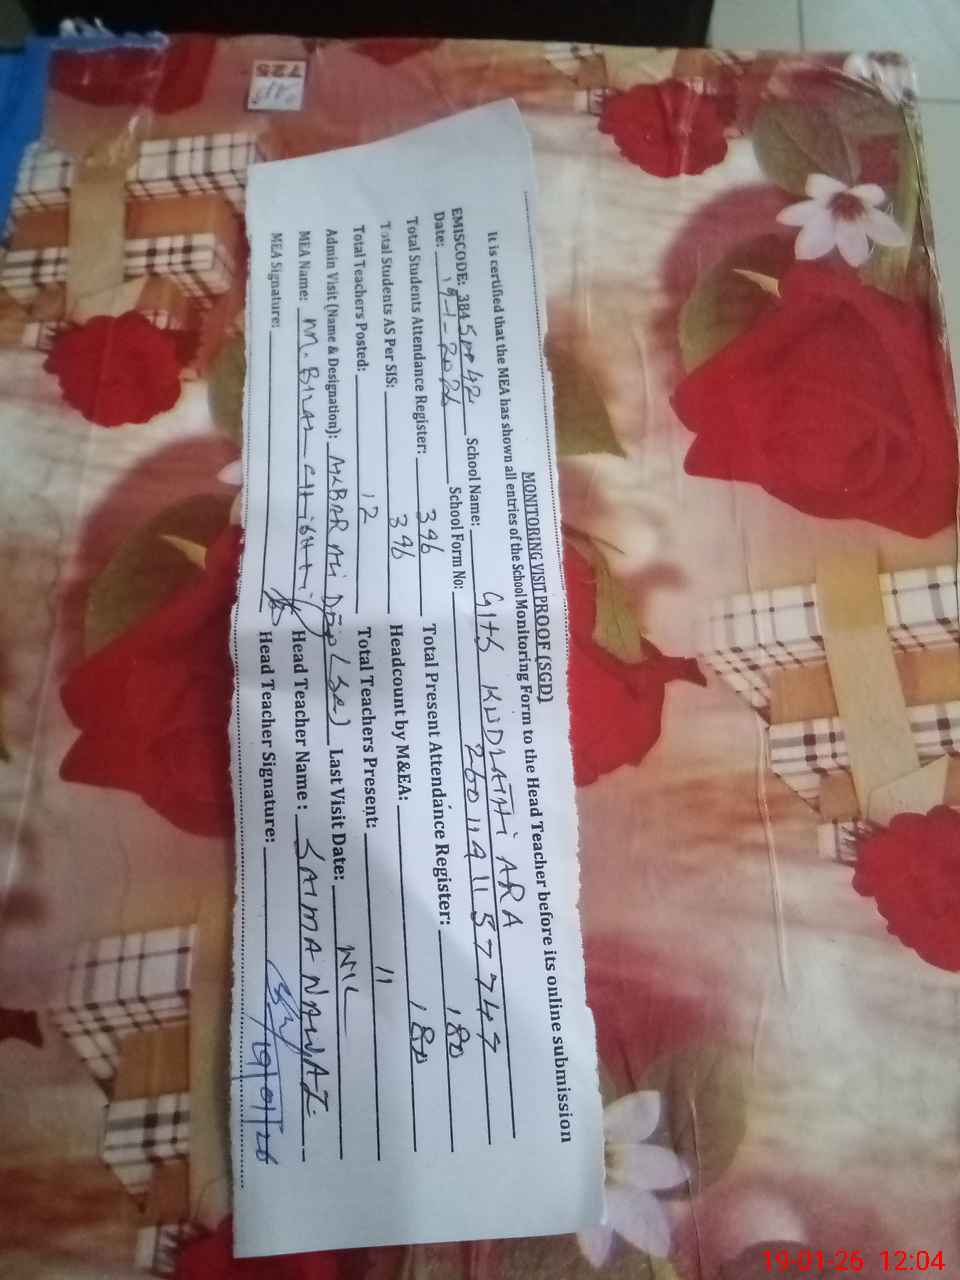 MONITORING VISIT PROOF (SGD)
It is certified that the MEA has shown all entries of the School Monitoring Form to the Head Teacher before its online submission
EMISCODE: School Name: KUDLATHI ARA
Date: 19-1-2026 School Form No:
Total Students Attendance Register: 396 Total Present Attendance Register: 180
Total Students AS Per SIS: 396 Headcount by M&EA: 180
Total Teachers Posted: 12 Total Teachers Present: 11
Admin Visit (Name & Designation): AKBAR Ali Last Visit Date: NIL
MEA Name: M. Head Teacher Name : SAIMA NAWAZ
MEA Signature: Head Teacher Signature: 19/01/26
19-01-26 12:04